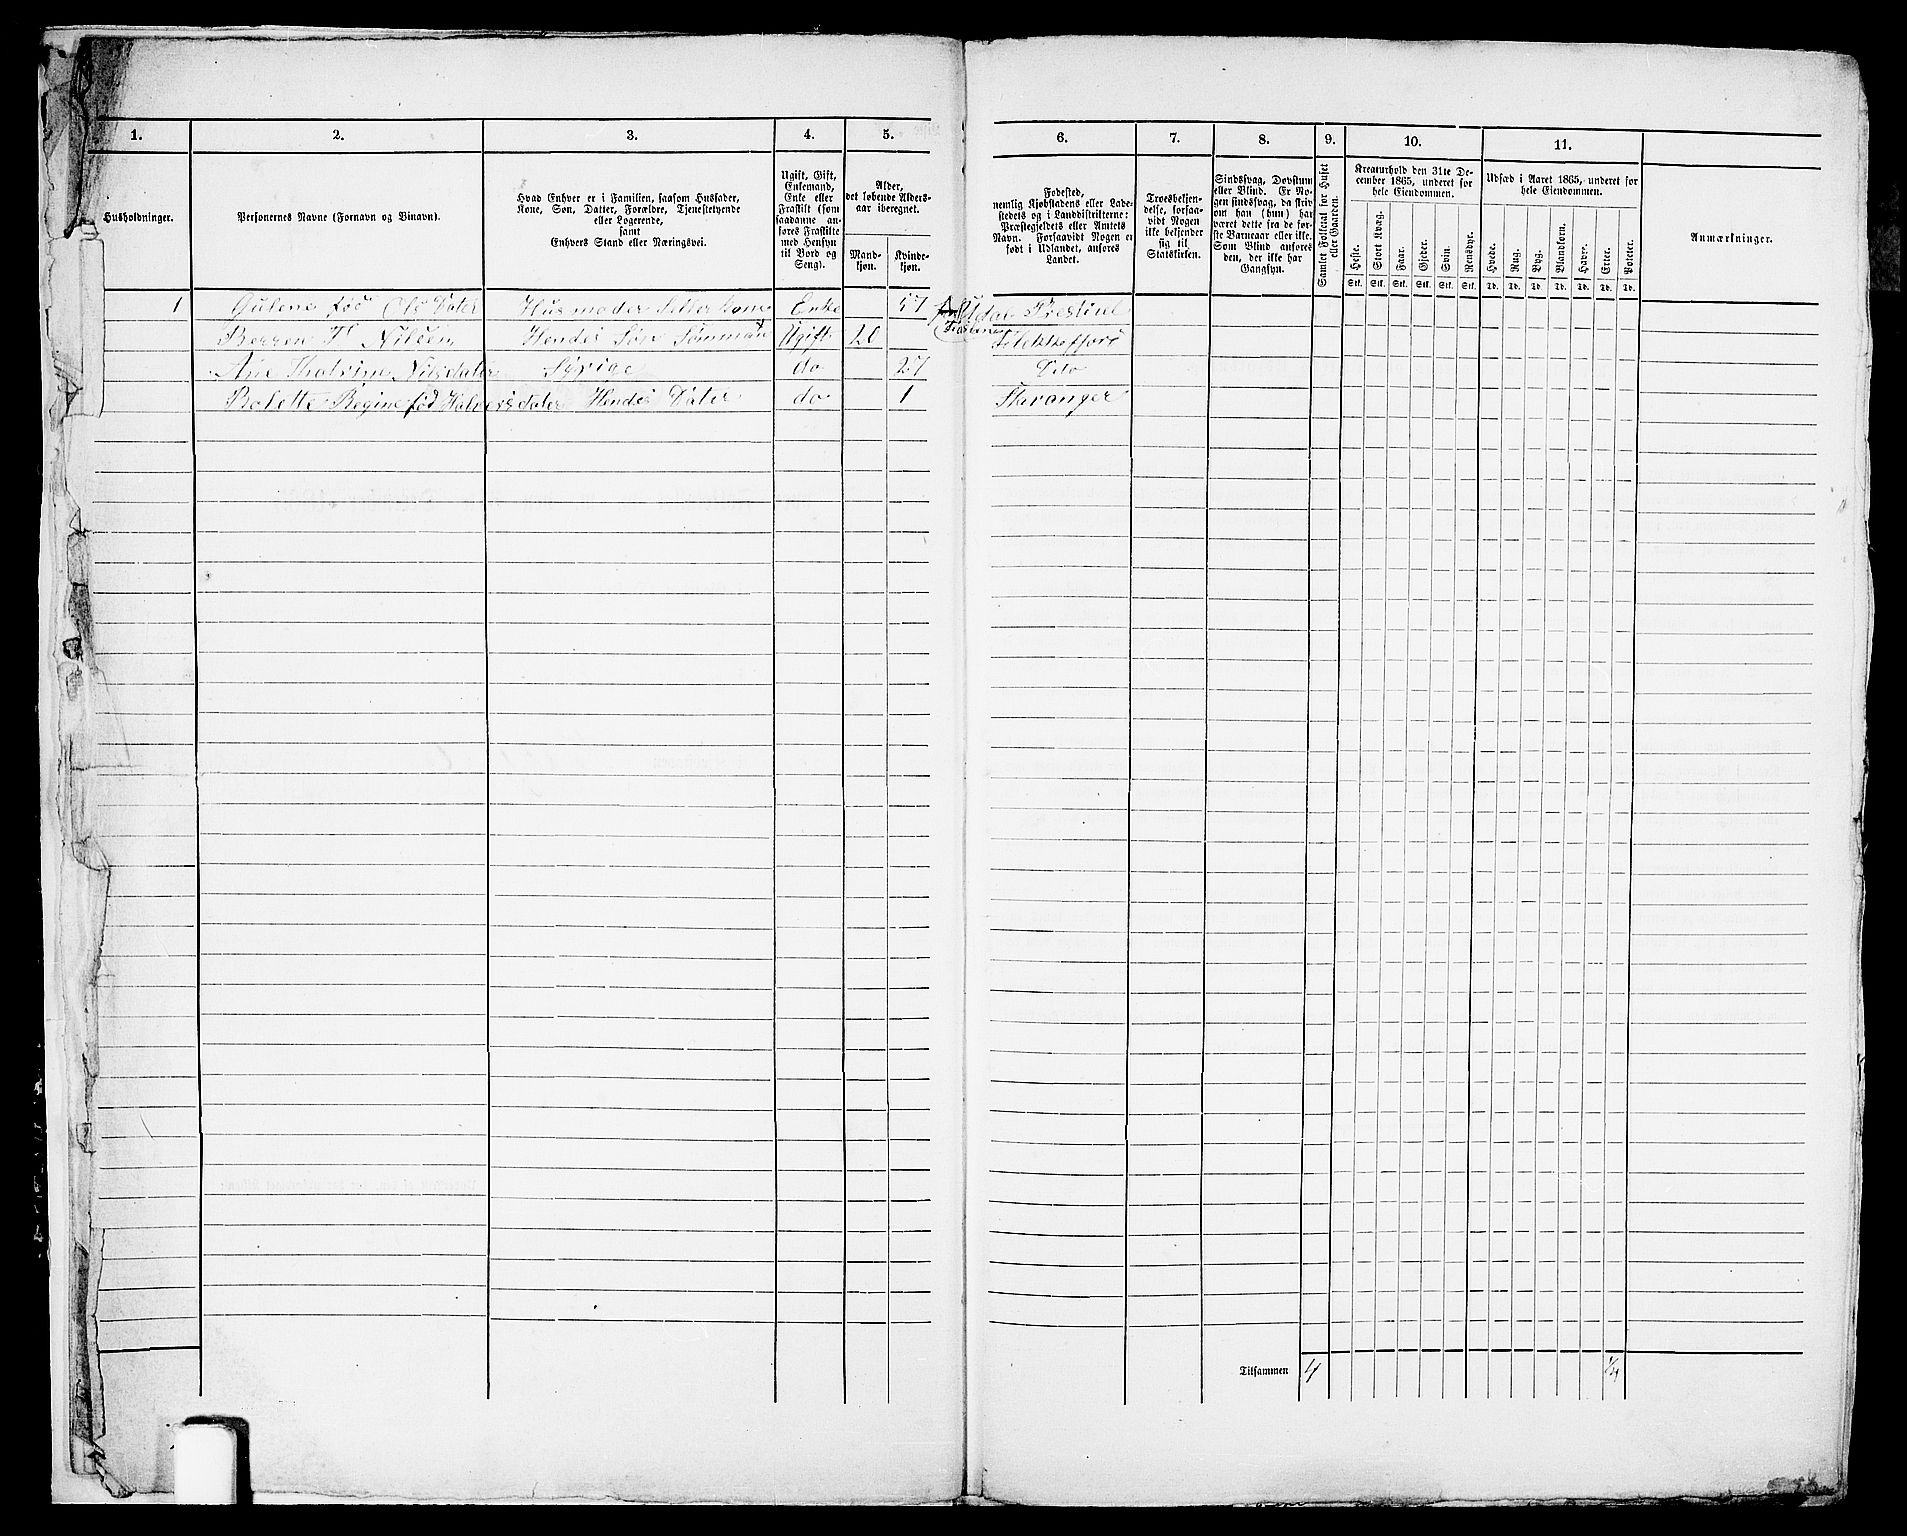 1. 2. 3. 4. 5. 6. 7. 8. 9. 10. 11.
Husholdninger.
Personernes Navne (Fornavn og Binavn).
Hvad Enhver er i Familien, saasom Husfader,
Kone, Søn, Datter, Forældre, Tjenestetyende
eller Logerende,
samt
Enhvers Stand eller Næringsvei.
Ugift, Gift,
Enkemand,
Enke eller
Fraskilt (som
saadanne an-
føres Fraskilte
med Hensyn
til Bord og
Seng).
Alder,
det løbende Alders-
aar iberegnet.
Mand-
kjøn.
Kvinde-
kjøn.
Fødested,
nemlig Kjøbstadens eller Lade-
stedets og i Landdistrikterne:
Præstegjeldets eller Amtets
Navn. Forsaavidt Nogen er
født i Udlandet, anføres
Landet.
Troesbekjen-
delse, forsaa-
vidt Nogen
ikke bekjender
sig til
Statskirken.
Sindssvag, Døvstum
eller Blind. Er No-
gen sindssvag, da skriv
om han (hun) har
været dette fra de før-
ste Barneaar eller ikke.
Som Blind anføres
den, der ikke har
Gangsyn.
Samlet Folketal for Huset
eller Gaarden.
Kreaturhold den 31te De-
cember 1865, underet for
hele Eiendommen.
Heste. Stort Kvæg. Faar. Gjeder. Svin. Rensdyr.
Stk. Stk. Stk. Stk. Stk. Stk.
Udsæd i Aaret 1865, underet for
hele Eiendommen.
Hvede. Rug. Byg. Blandkorn. Havre. Erter. Poteter.
Td. Td. Td. Td. Td. Td. Td.
Anmærkninger.
1 Gulene fød Ols Dater Husmoder Enke 57
Berren T Nilsen Hendes Søn Sømmand Ugift 20
Ane Thatrine Nilsdater Syrige do 27 Dito
Bolette Regine fød Halversdater Hendes Dater do 1 Stavanger
Tilsammen 4 1/4